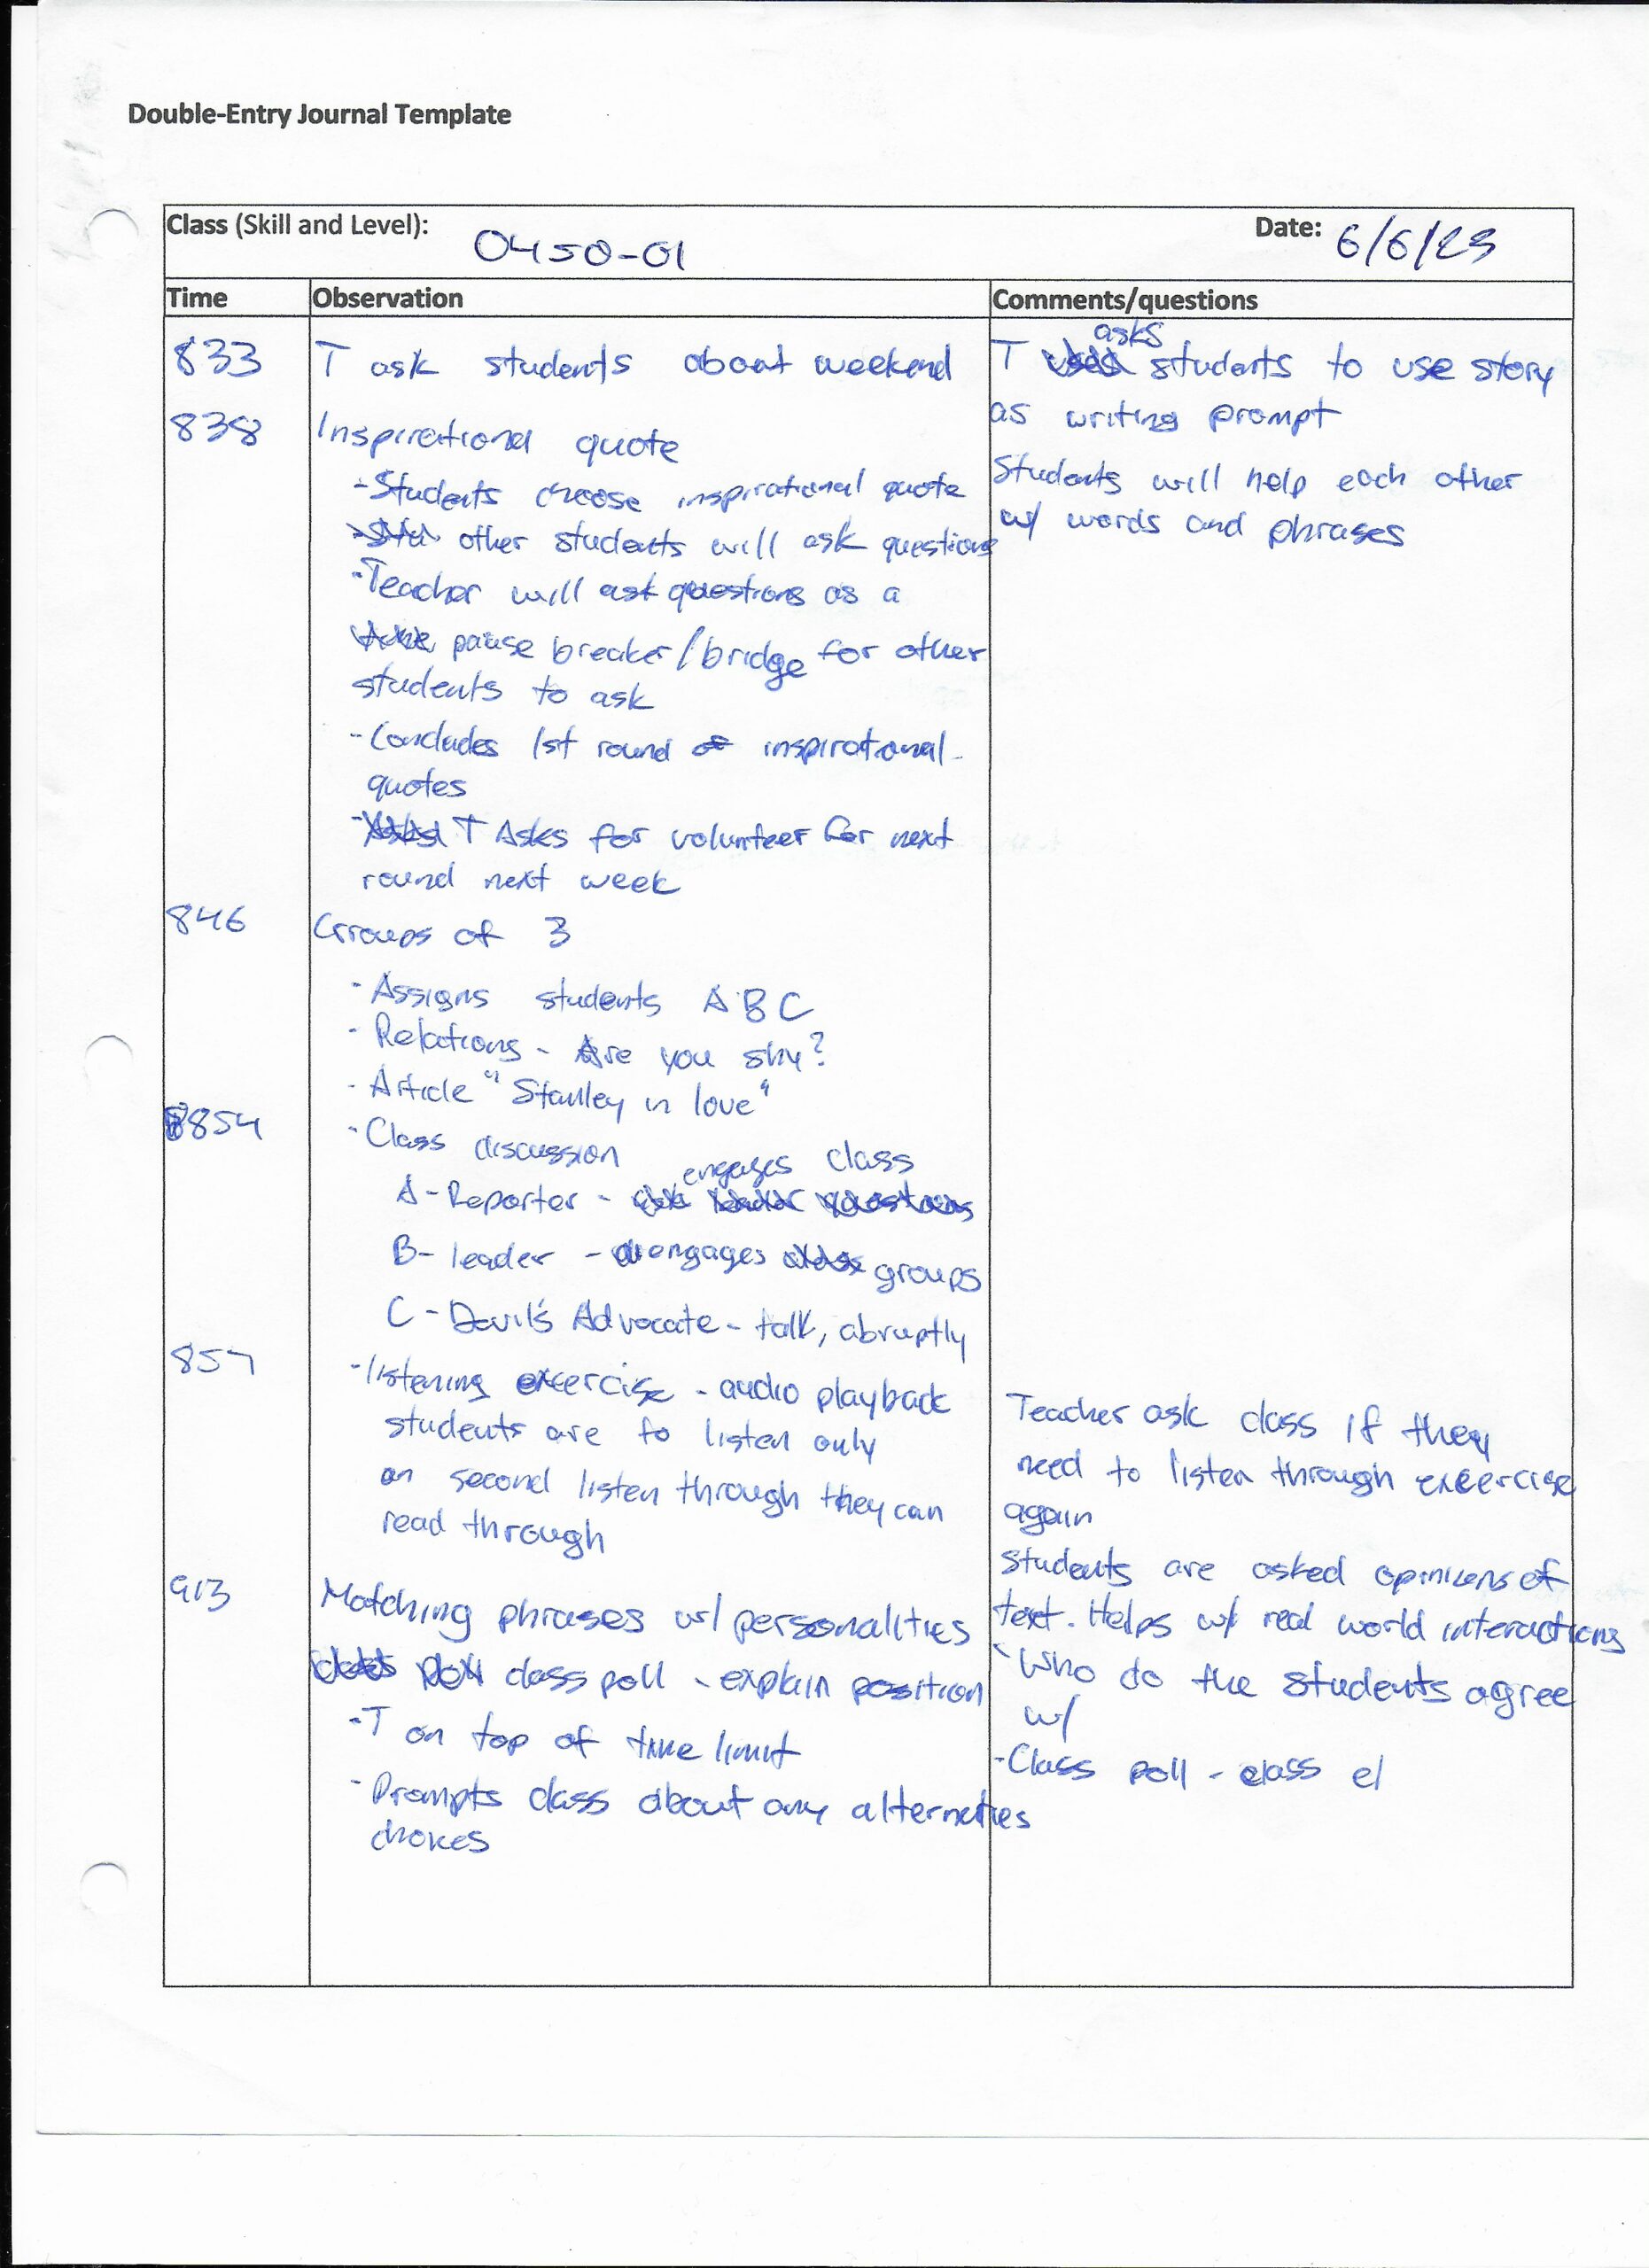 Double-Entry Journal Template
Class (Skill and Level): 0450-01 Date: 6/6/23
Time Observation Comments/questions
833 T ask students about weekend
T asks students to use story
as writing prompt
838 Inspirational quote
Students will help each other
w/ words and phrases
-Students choose inspirational quote
other students will ask questions
-Teacher will ask questions as a
pause breaker/bridge for other
students to ask
-Concludes 1st round of inspirational
quotes
-T Asks for volunteer for next
round next week
846 Groups of 3
-Assigns students A B C
-Relations - Are you shy?
-Article "Stanley in love"
854 -Class discussion
A-Reporter - engages class
B-leader - engages groups
C-Devil's Advocate - talk, abruptly
857 -listening exercise - audio playback
students are to listen only
on second listen through they can
read through
Teacher ask class if they
need to listen through excercise
again
913 Matching phrases w/ personalities
class poll - explain position
-T on top of time limit
-Prompts class about any alternaties
choices
Students are asked opinions of
text. Helps w/ real world interactions
-Who do the students agree
w/
-Class poll - class el